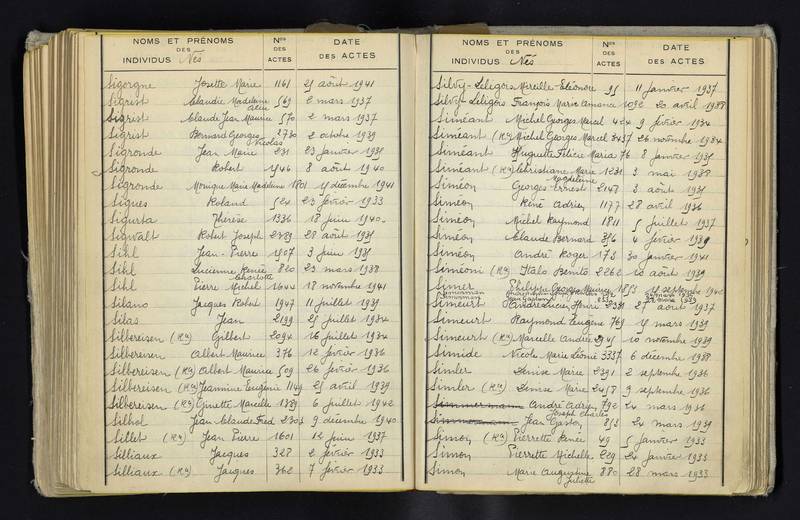 NOMS ET PRÉNOMS DES INDIVIDUS Nés Nos DES ACTES DATE DES ACTES
Sigorgne Josette Marie 1161 21 août 1941
Sigrist Claudie Madeleine 569 2 mars 1937
Sigrist Claude Jean Maurice 570 2 mars 1937
Sigrist Bernard Georges Nicolas 2730 2 octobre 1939
Sigronde Jean Marie 231 23 janvier 1935
Sigronde Robert 1546 8 août 1940
Sigronde Monique Marie Madeleine 1801 1 décembre 1941
Sigues Roland 524 23 février 1933
Sigurta Thérèse 1336 18 juin 1940
Sigwalt Robert Joseph 2289 28 août 1935
Sihl Jean-Pierre 1507 3 juin 1935
Sihl Lucienne Renée Charlotte 820 23 mars 1938
Sihl Pierre Michel 1644 18 novembre 1941
Silano Jacques Robert 1947 11 juillet 1939
Silas Jean 2199 25 juillet 1934
Silbereisen (Rn) Gilbert 2094 16 juillet 1934
Silbereisen Albert Maurice 376 12 février 1936
Silbereisen (Rn) Albert Maurice 509 26 février 1936
Silbereisen (Rn) Jeannine Eugénie 1149 25 avril 1939
Silbereisen (Rn) Ginette Marcelle 1389 6 juillet 1942
Silhol Jean Claude Fred 2303 9 décembre 1940
Sillet (Rn) Jean Pierre 1601 12 juin 1937
Silliaux Jacques 328 2 février 1933
Silliaux (Rn) Jacques 362 7 février 1933
NOMS ET PRÉNOMS DES INDIVIDUS Nés Nos DES ACTES DATE DES ACTES
Silvy-Leligois Mireille-Eléonore 95 11 janvier 1937
Silvy-Leligois François Marie 1092 20 avril 1938
Siméant Michel Georges Marcel 424 9 février 1934
Siméant (Rn) Michel Georges Marcel 3437 26 novembre 1934
Siméant Huguette Félicie Maria 76 8 janvier 1935
Siméant (Rn) Christiane Marie Magdeleine 1231 3 mai 1938
Siméon Georges Ernest 2147 3 août 1935
Siméon René Adrien 1177 28 avril 1936
Siméon Michel Raymond 1811 5 juillet 1937
Siméon Claude Bernard 356 4 février 1939
Siméon André Roger 173 30 janvier 1941
Siméoni (Rn) Italo Benito 2262 10 août 1939
Simer Philippe Georges Maurice 1853 septembre 1942
Simmermann 24 mars 1936
Simmermann Jean Gaston 24 mars 1939
Simeurt André Lucien Henri 2331 27 août 1937
Simeurt Raymond Eugène 769 7 mars 1939
Simeurt (Rn) Marcelle Andrée 2945 10 novembre 1939
Simide Nicole Marie Léonie 3337 6 décembre 1938
Simler Denise Marie 2391 2 septembre 1936
Simler (Rn) Denise Marie 2458 9 septembre 1936
Simmermann André Adrien 792 24 mars 1936
Simmermann Jean Gaston Joseph Charles 853 24 mars 1939
Simon (Rn) Pierrette Renée 49 5 janvier 1933
Simon Pierrette Michelle 229 24 janvier 1933
Simon Marie Augustine Juliette 880 28 mars 1933